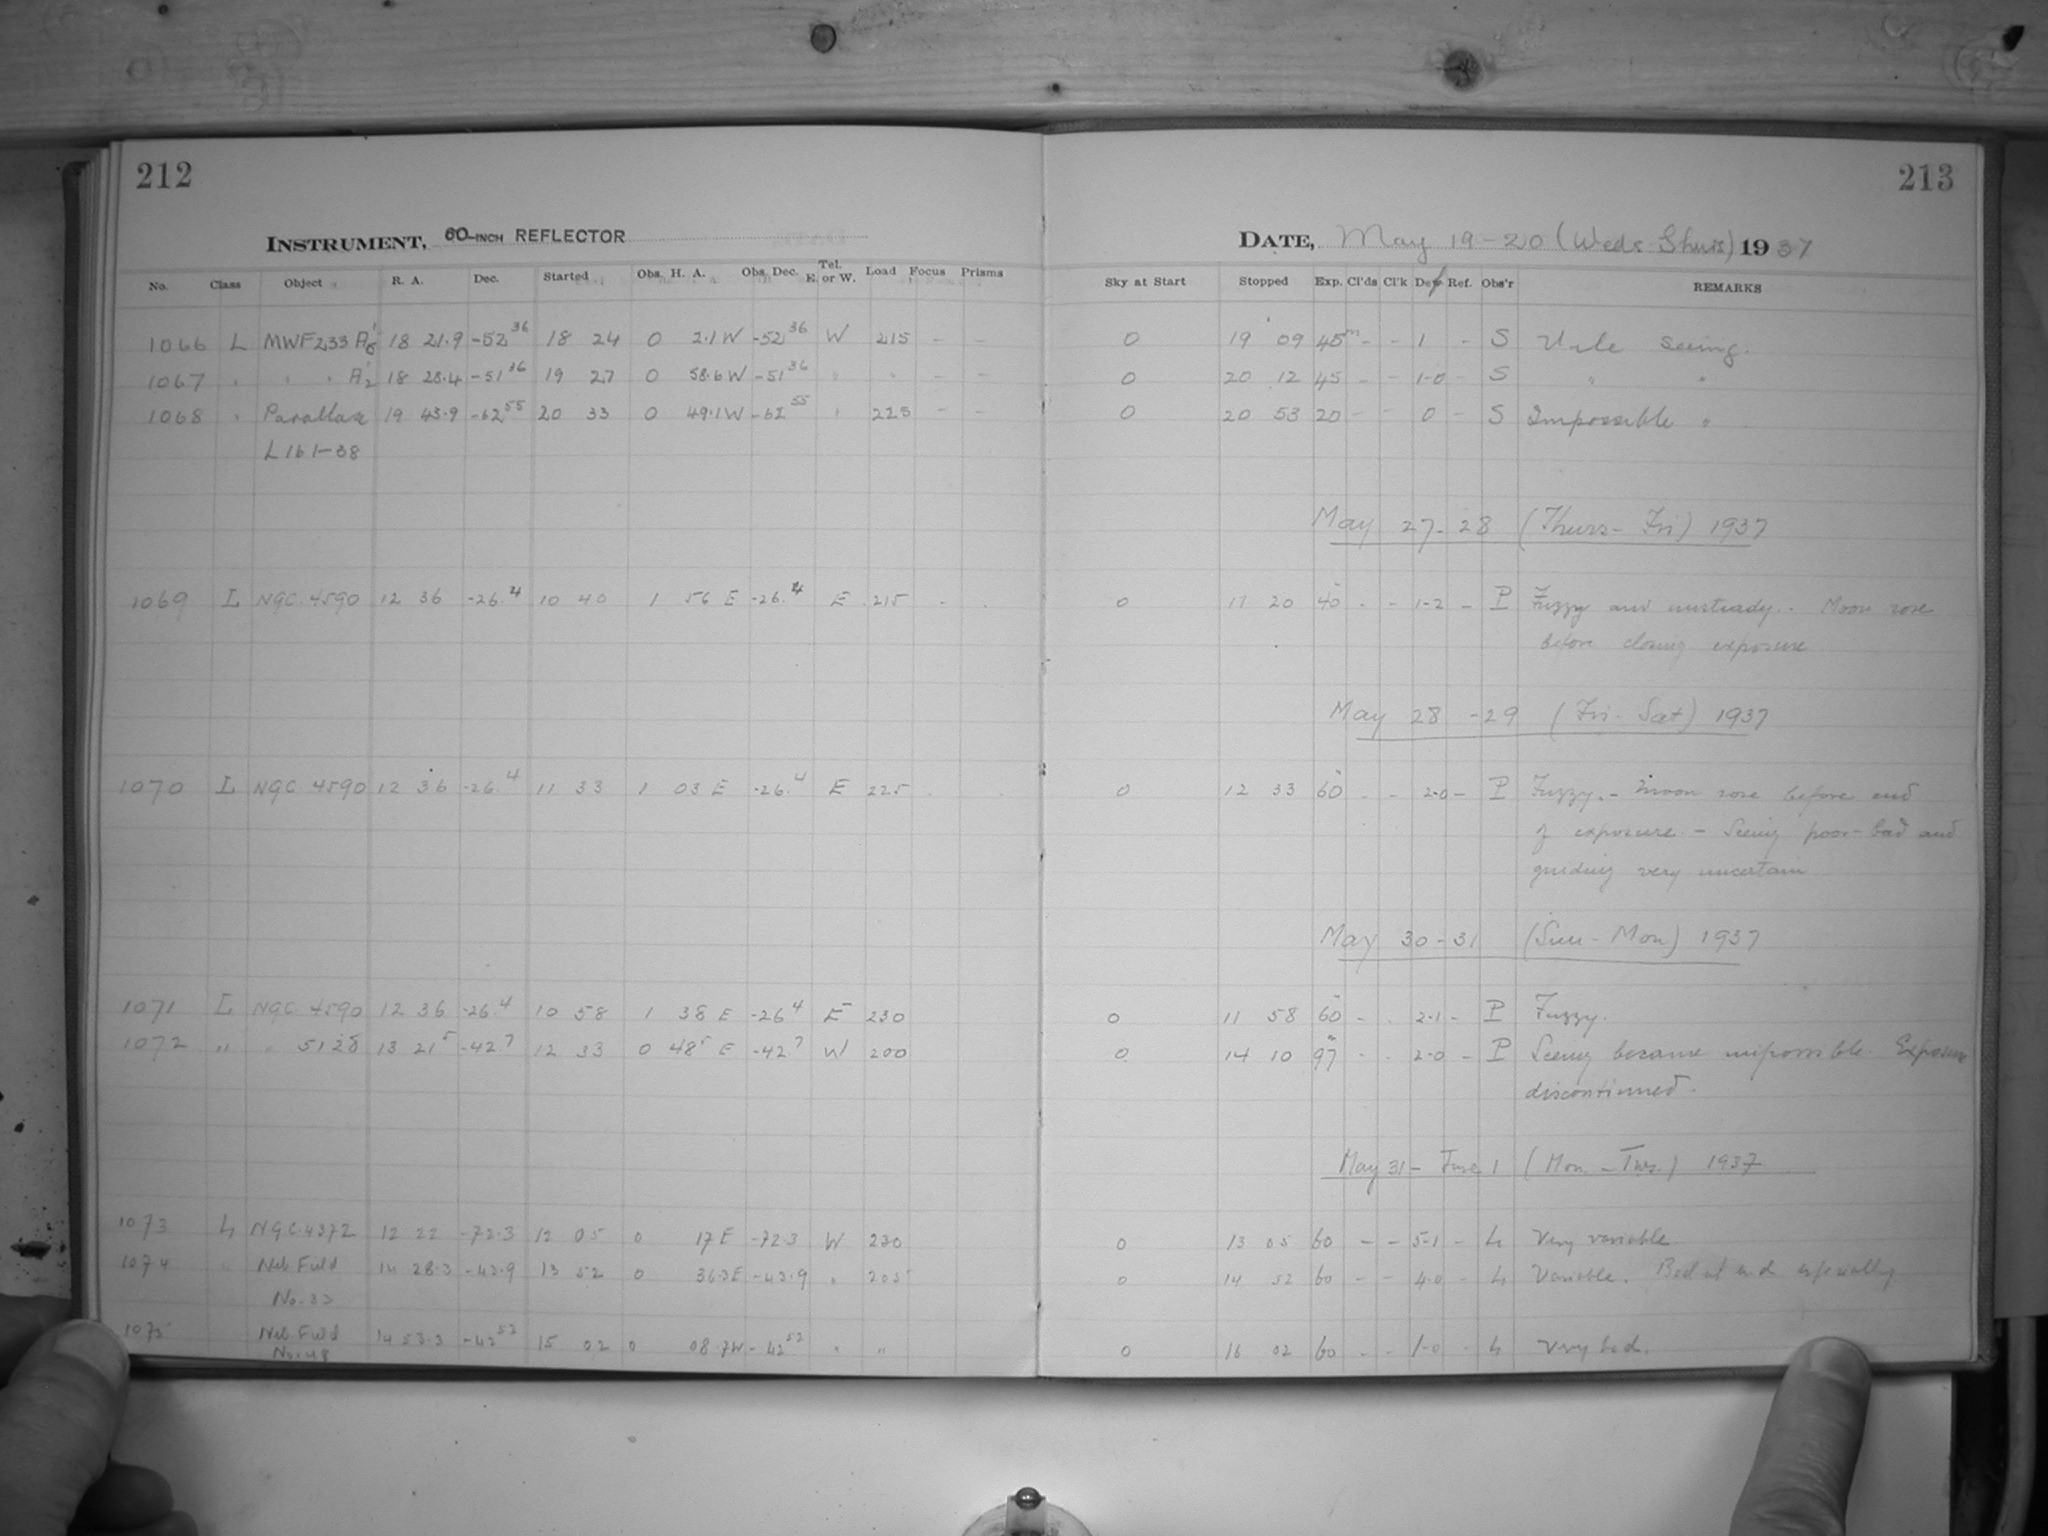 212
INSTRUMENT, 60-INCH REFLECTOR
No. Class Object R. A. Dec. Started Obs. H. A. Obs. Dec. Tel. E. or W. Load Focus Prisms
1066 L MWF233 18 21.9 -52 36 18 24 0 2.1 W -52 36 W 215 - -
1067 " " " 18 28.4 -51 36 19 27 0 58.6 W -51 36 " " - -
1068 " Parallax 19 43.9 -62 55 20 33 0 49.1 W -62 55 " 225 - -
L161-38
1069 L NGC 4590 12 36 -26.4 10 40 1 56 E -26.4 E 215 - -
1070 L NGC 4590 12 36 -26.4 11 33 1 03 E -26.4 E 225 - -
1071 L NGC 4590 12 36 -26.4 10 58 1 38 E -26.4 E 230
1072 " " 5128 13 21 5 -42.7 12 33 0 48 5 E -42.7 W 200
1073 L NGC.4372 12 22 -72.3 12 05 0 17 E -72.3 W 230
1074 " Neb Field 14 28.3 -43.9 13 52 0 36.3 E -43.9 " 205
No. 33
1075 Neb Field 14 53.3 -42 52 15 02 0 08.7 W -42 52 " "
No. 48
213
DATE, May 19-20 (Weds-Thurs) 1937
Sky at Start Stopped Exp. Cl'ds Cl'k Def Ref. Obs'r REMARKS
0 19 09 45m - - 1 - S Vile Seeing.
0 20 12 45 - - 1-0 - S " "
0 20 53 20 - - 0 - S Impossible "
May 27-28 (Thurs-Fri) 1937
0 11 20 40 - - 1-2 - P Fuzzy and unsteady. Moon rose
before closing exposure
May 28-29 (Fri-Sat) 1937
0 12 33 60 - - 2-0 - P Fuzzy. - Moon rose before end
of exposure. - Seeing poor-bad and
guiding very uncertain
May 30-31 (Sun-Mon) 1937
0 11 58 60 - - 2-1 - P Fuzzy.
0 14 10 97 - - 2-0 - P Seeing became impossible. Exposure
discontinued.
May 31 - June 1 (Mon-Tues.) 1937
0 13 05 60 - - 5-1 - L Very variable
0 14 52 60 - - 4-0 - L Variable. Bad at end especially
0 16 02 60 - - 1-0 - L Very bad.